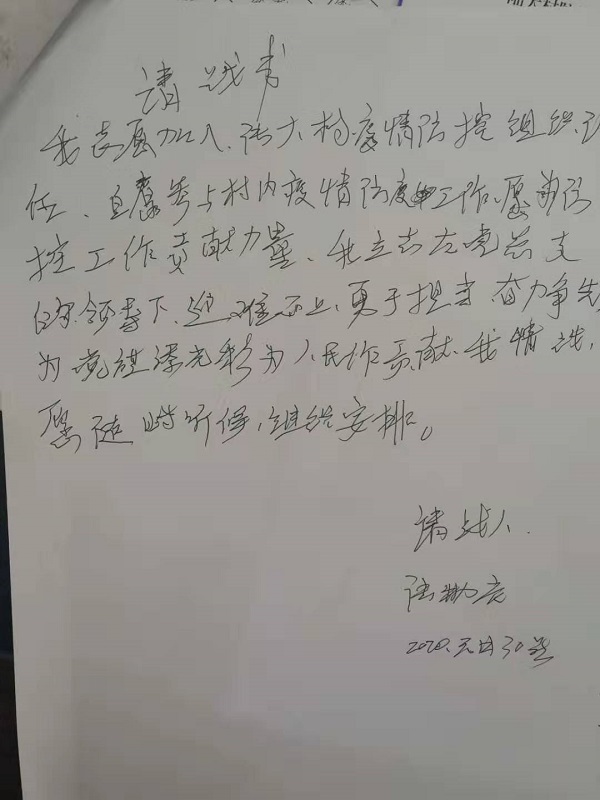 请战书
我志愿加入、陆大村疫情防控组织、
任、自愿参与村内疫情防工作、愿为防
控工作贡献力量、我立志在党总支
的领导下、迎难而上、勇于担当、奋力争先
为党旗添光彩为人民作贡献、我请战,
愿随时听候,组织安排。
请战人.
陆勤亮
2020.元月30号